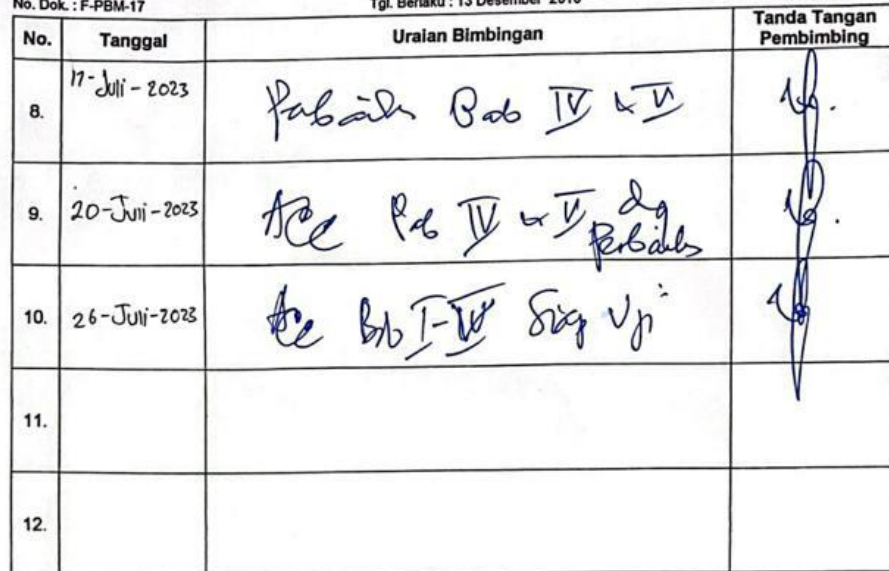 No. Dok. : F-PBM-17 Tgl. Berlaku : 13 Desember 2010
No. Tanggal Uraian Bimbingan Tanda Tangan Pembimbing
8. 17-Juli-2023 Perbaiki Bab IV & V
9. 20-Juli-2023 Acc Bab IV & V dg
Perbaiki
10. 26-Juli-2023 Acc Bab I-IV Siap Uji
11.
12.